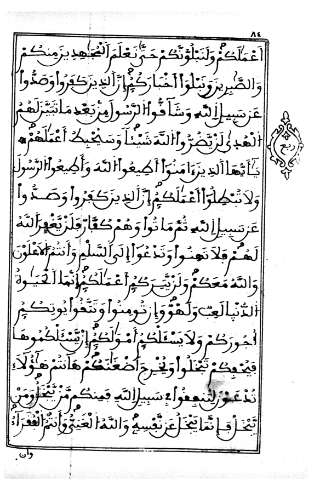 ٨٤
أَعْمَلَكُمْ وَلَنَبْلُوَنَّكُمْ حَتَّىٰ نَعْلَمَ ٱلْمُجَٰهِدِينَ مِنكُمْ
وَٱلصَّٰبِرِينَ وَنَبْلُوَا۟ أَخْبَارَكُمْ إِنَّ ٱلَّذِينَ كَفَرُوا۟ وَصَدُّوا۟
عَن سَبِيلِ ٱللَّهِ وَشَآقُّوا۟ ٱلرَّسُولَ مِنۢ بَعْدِ مَا تَبَيَّنَ لَهُمُ
ٱلْهُدَىٰ لَن يَضُرُّوا۟ ٱللَّهَ شَيْـًٔا وَسَيُحْبِطُ أَعْمَٰلَهُمْ
يَٰٓأَيُّهَا ٱلَّذِينَ ءَامَنُوٓا۟ أَطِيعُوا۟ ٱللَّهَ وَأَطِيعُوا۟ ٱلرَّسُولَ
وَلَا تُبْطِلُوٓا۟ أَعْمَٰلَكُمْ إِنَّ ٱلَّذِينَ كَفَرُوا۟ وَصَدُّوا۟
عَن سَبِيلِ ٱللَّهِ ثُمَّ مَاتُوا۟ وَهُمْ كُفَّارٌ فَلَن يَغْفِرَ ٱللَّهُ
لَهُمْ فَلَا تَهِنُوا۟ وَتَدْعُوٓا۟ إِلَى ٱلسَّلْمِ وَأَنتُمُ ٱلْأَعْلَوْنَ
وَٱللَّهُ مَعَكُمْ وَلَن يَتِرَكُمْ أَعْمَٰلَكُمْ إِنَّمَا ٱلْحَيَوٰةُ
ٱلدُّنْيَا لَعِبٌ وَلَهْوٌ وَإِن تُومِنُوا۟ وَتَتَّقُوا۟ يُوتِكُمُۥٓ
أُجُورَكُمْ وَلَا يَسْـَٔلْكُمُۥٓ أَمْوَٰلَكُمُۥٓ إِن يَسْـَٔلْكُمُوهَا
فَيُحْفِكُمْ تَبْخَلُوا۟ وَيُخْرِجَ أَضْغَٰنَكُمْ هَآنتُمْ هَٰٓؤُلَآءِ
تُدْعَوْنَ لِتُنفِقُوا۟ فِي سَبِيلِ ٱللَّهِ فَمِنكُم مَّن يَبْخَلُ وَمَن
يَّبْخَلْ فَإِنَّمَا يَبْخَلُ عَن نَّفْسِهِۦ وَٱللَّهُ ٱلْغَنِيُّ وَأَنتُمُ ٱلْفُقَرَآءُ
وإن
ربع